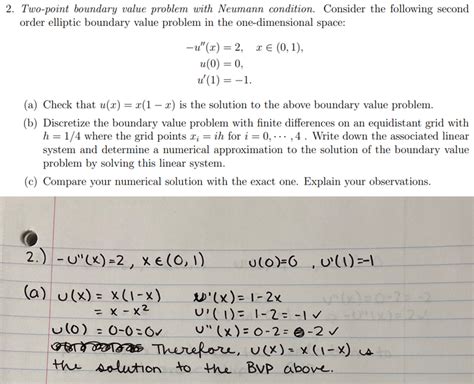 2. Two-point boundary value problem with Neumann condition. Consider the following second
order elliptic boundary value problem in the one-dimensional space:
−u″(x) = 2, x ∈ (0, 1),
u(0) = 0,
u′(1) = −1.
(a) Check that u(x) = x(1 − x) is the solution to the above boundary value problem.
(b) Discretize the boundary value problem with finite differences on an equidistant grid with
h = 1/4 where the grid points xᵢ = ih for i = 0, ⋯ , 4 . Write down the associated linear
system and determine a numerical approximation to the solution of the boundary value
problem by solving this linear system.
(c) Compare your numerical solution with the exact one. Explain your observations.
2.) -u"(x)=2, x∈(0,1) u(0)=0, u'(1)=-1
(a) u(x) = x(1-x) u'(x)= 1-2x
= x - x² u'(1)= 1-2=-1✓
u(0) = 0-0=0✓ u"(x)=0-2= -2✓
Therefore, u(x)=x(1-x) is
the solution to the BVP above.